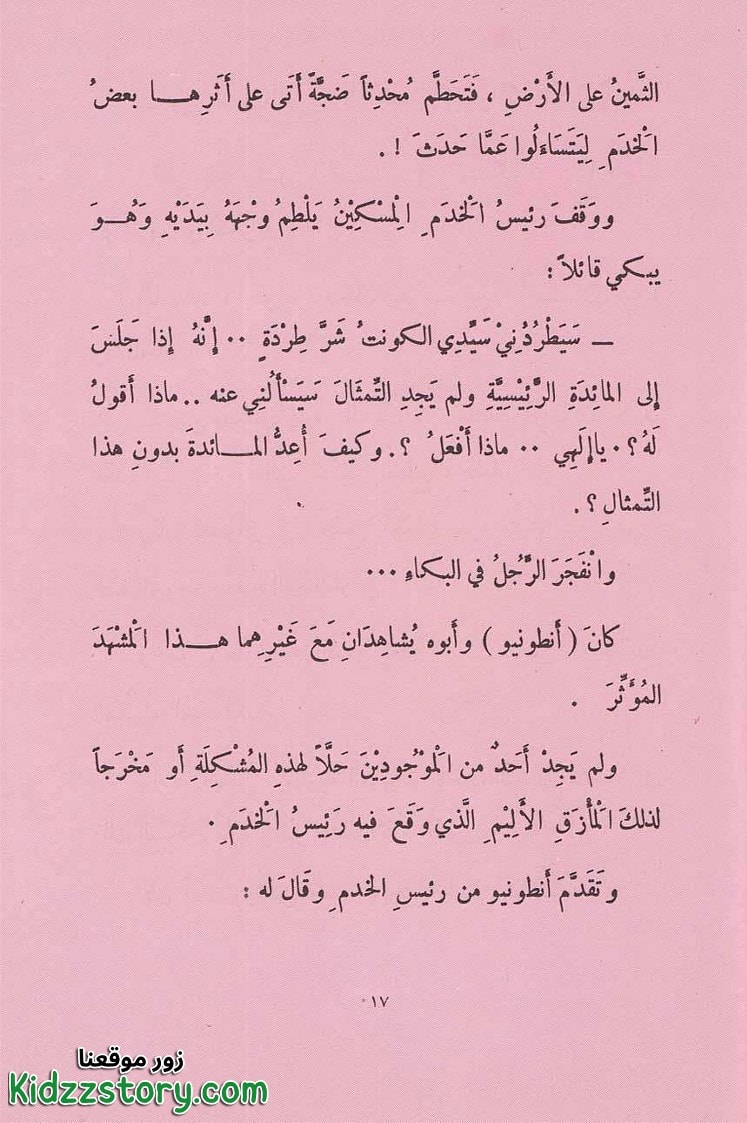 الثَّمينُ على الأَرْضِ ، فَتَحَطَّم مُحْدِثاً ضَجَّةً أَتَى على أَثَرِهــا بعضُ
الْخدَمِ لِيَتَسَاءَلُوا عَمَّا حَدَثَ ! .
ووَقَفَ رئيسُ الْخدَمِ الْمِسْكِيْنُ يَلْطِمُ وجْهَهُ بِيَدَيْهِ وَهُــوَ
يبكي قائلاً :
ــ سَيَطْرُدُنِيْ سَيِّدِي الكونتُ شَرَّ طِرْدَةٍ .. إِنَّهُ إِذا جَلَسَ
إلى المائِدَةِ الرَّئِيْسِيَّةِ ولم يَجِدِ التِّمثَالَ سَيَسْأَلُنِي عنه .. ماذا أَقولُ
لَهُ ؟. ياإِلَهِي .. ماذا أَفْعَلُ ؟. وكيفَ أُعِدُّ المــائدةَ بدونِ هذا
التِّمثالِ ؟ .
وانْفَجَرَ الرَّجُلُ في البكاءِ ...
كانَ ( أَنطونيو ) وأَبوه يُشاهِدَانِ مَعَ غَيْرِهِما هــذا الْمَشْهَدَ
المُؤَثِّرَ .
ولم يَجِدْ أَحَدٌ من الْموْجُودِيْنَ حَلَّاً لهذهِ المُشْكِلَةِ أَو مَخْرَجاً
لذلكَ الْمأْزَقِ الأَلِيْمِ الَّذي وَقَعَ فيه رَئِيسُ الْخدَمِ .
وتَقَدَّمَ أَنطونيو من رئيسِ الخدمِ وقَالَ له :
١٧
زور موقعنا
Kidzzstory.com